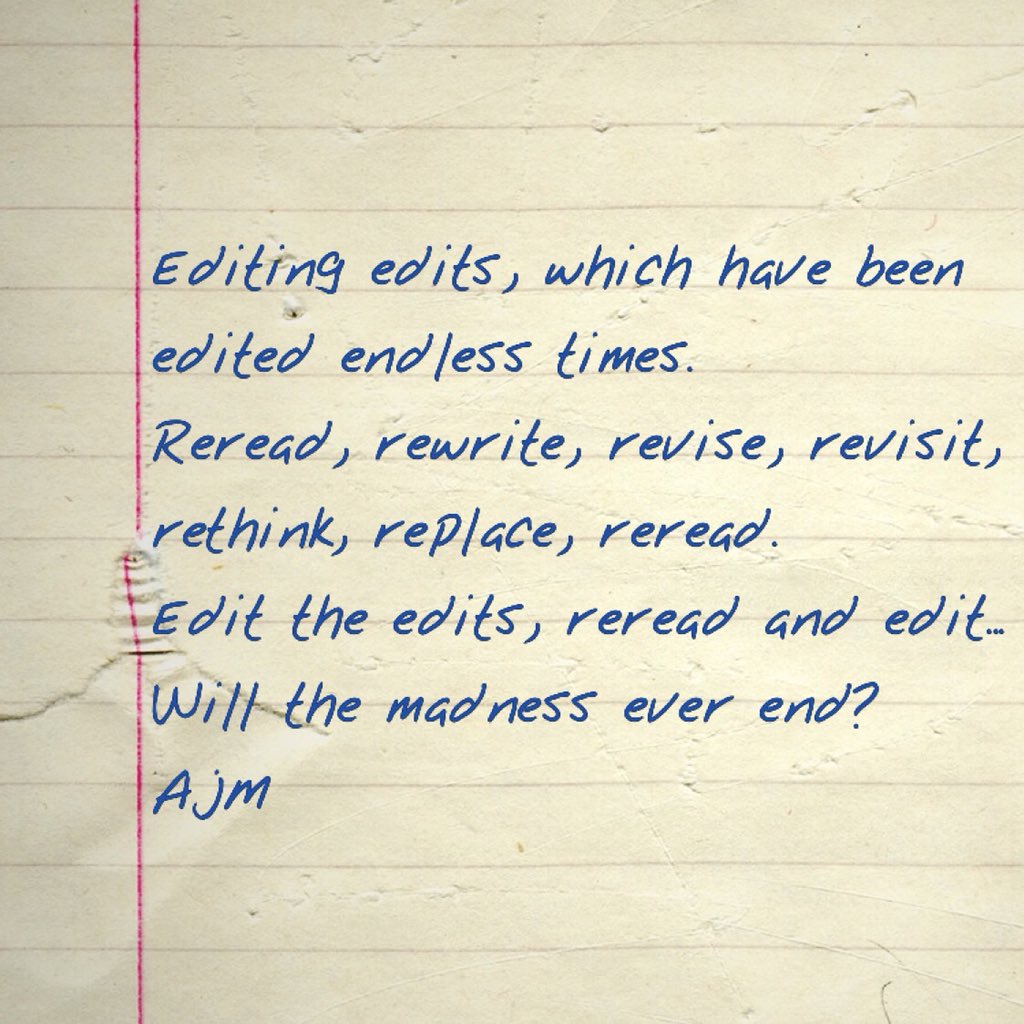 Editing edits, which have been
edited endless times.
Reread, rewrite, revise, revisit,
rethink, replace, reread.
Edit the edits, reread and edit...
Will the madness ever end?
Ajm